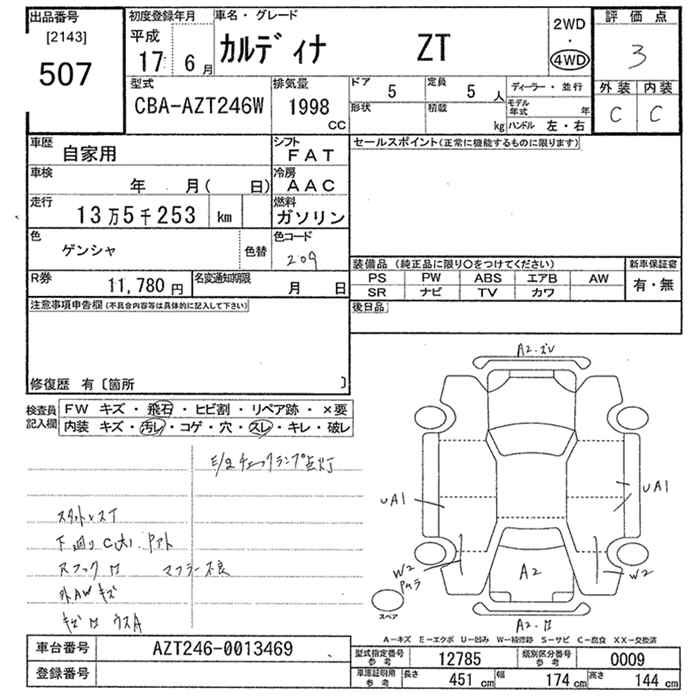 出品番号
[2143]
507
初度登録年月
平成
17 6月
車名・グレード
カルディナ ZT
2WD
・
4WD
評価点
3
外装 内装
C C
型式
CBA-AZT246W
排気量
1998
CC
ドア 5
定員 5人
形状
積載 kg
ディーラー・並行
モデル年式 年
ハンドル 左・右
車歴 自家用
シフト FAT
車検 年 月( 日)
冷房 AAC
走行 13万5千253 km
燃料 ガソリン
色 ゲンシャ 色替
色コード 209
R券 11,780円
名変通知期限 月 日
セールスポイント(正常に機能するものに限ります)
装備品(純正品に限り○をつけてください)
PS PW ABS エアB AW
SR ナビ TV カワ
新車保証書
有・無
後日品
注意事項申告欄(不具合内容等は具体的に記入して下さい)
修復歴 有〔箇所 〕
検査員記入欄
FW キズ・飛石・ヒビ割・リペア跡・×要
内装 キズ・汚レ・コゲ・穴・スレ・キレ・破レ
チェックランプ点灯
スタットレスT
下回りC(大)
マフラー不良
外AWキズ
A2・
UA1
UA1
W2
W2
A2
A2・
スペア
A-キズ E-エクボ U-凹み W-補修跡 S-サビ C-腐食 XX-交換済
車台番号 AZT246-0013469
登録番号
型式指定番号 参考 12785
類別区分番号 参考 0009
車庫証明用 参考
長さ 451cm 幅 174cm 高さ 144cm